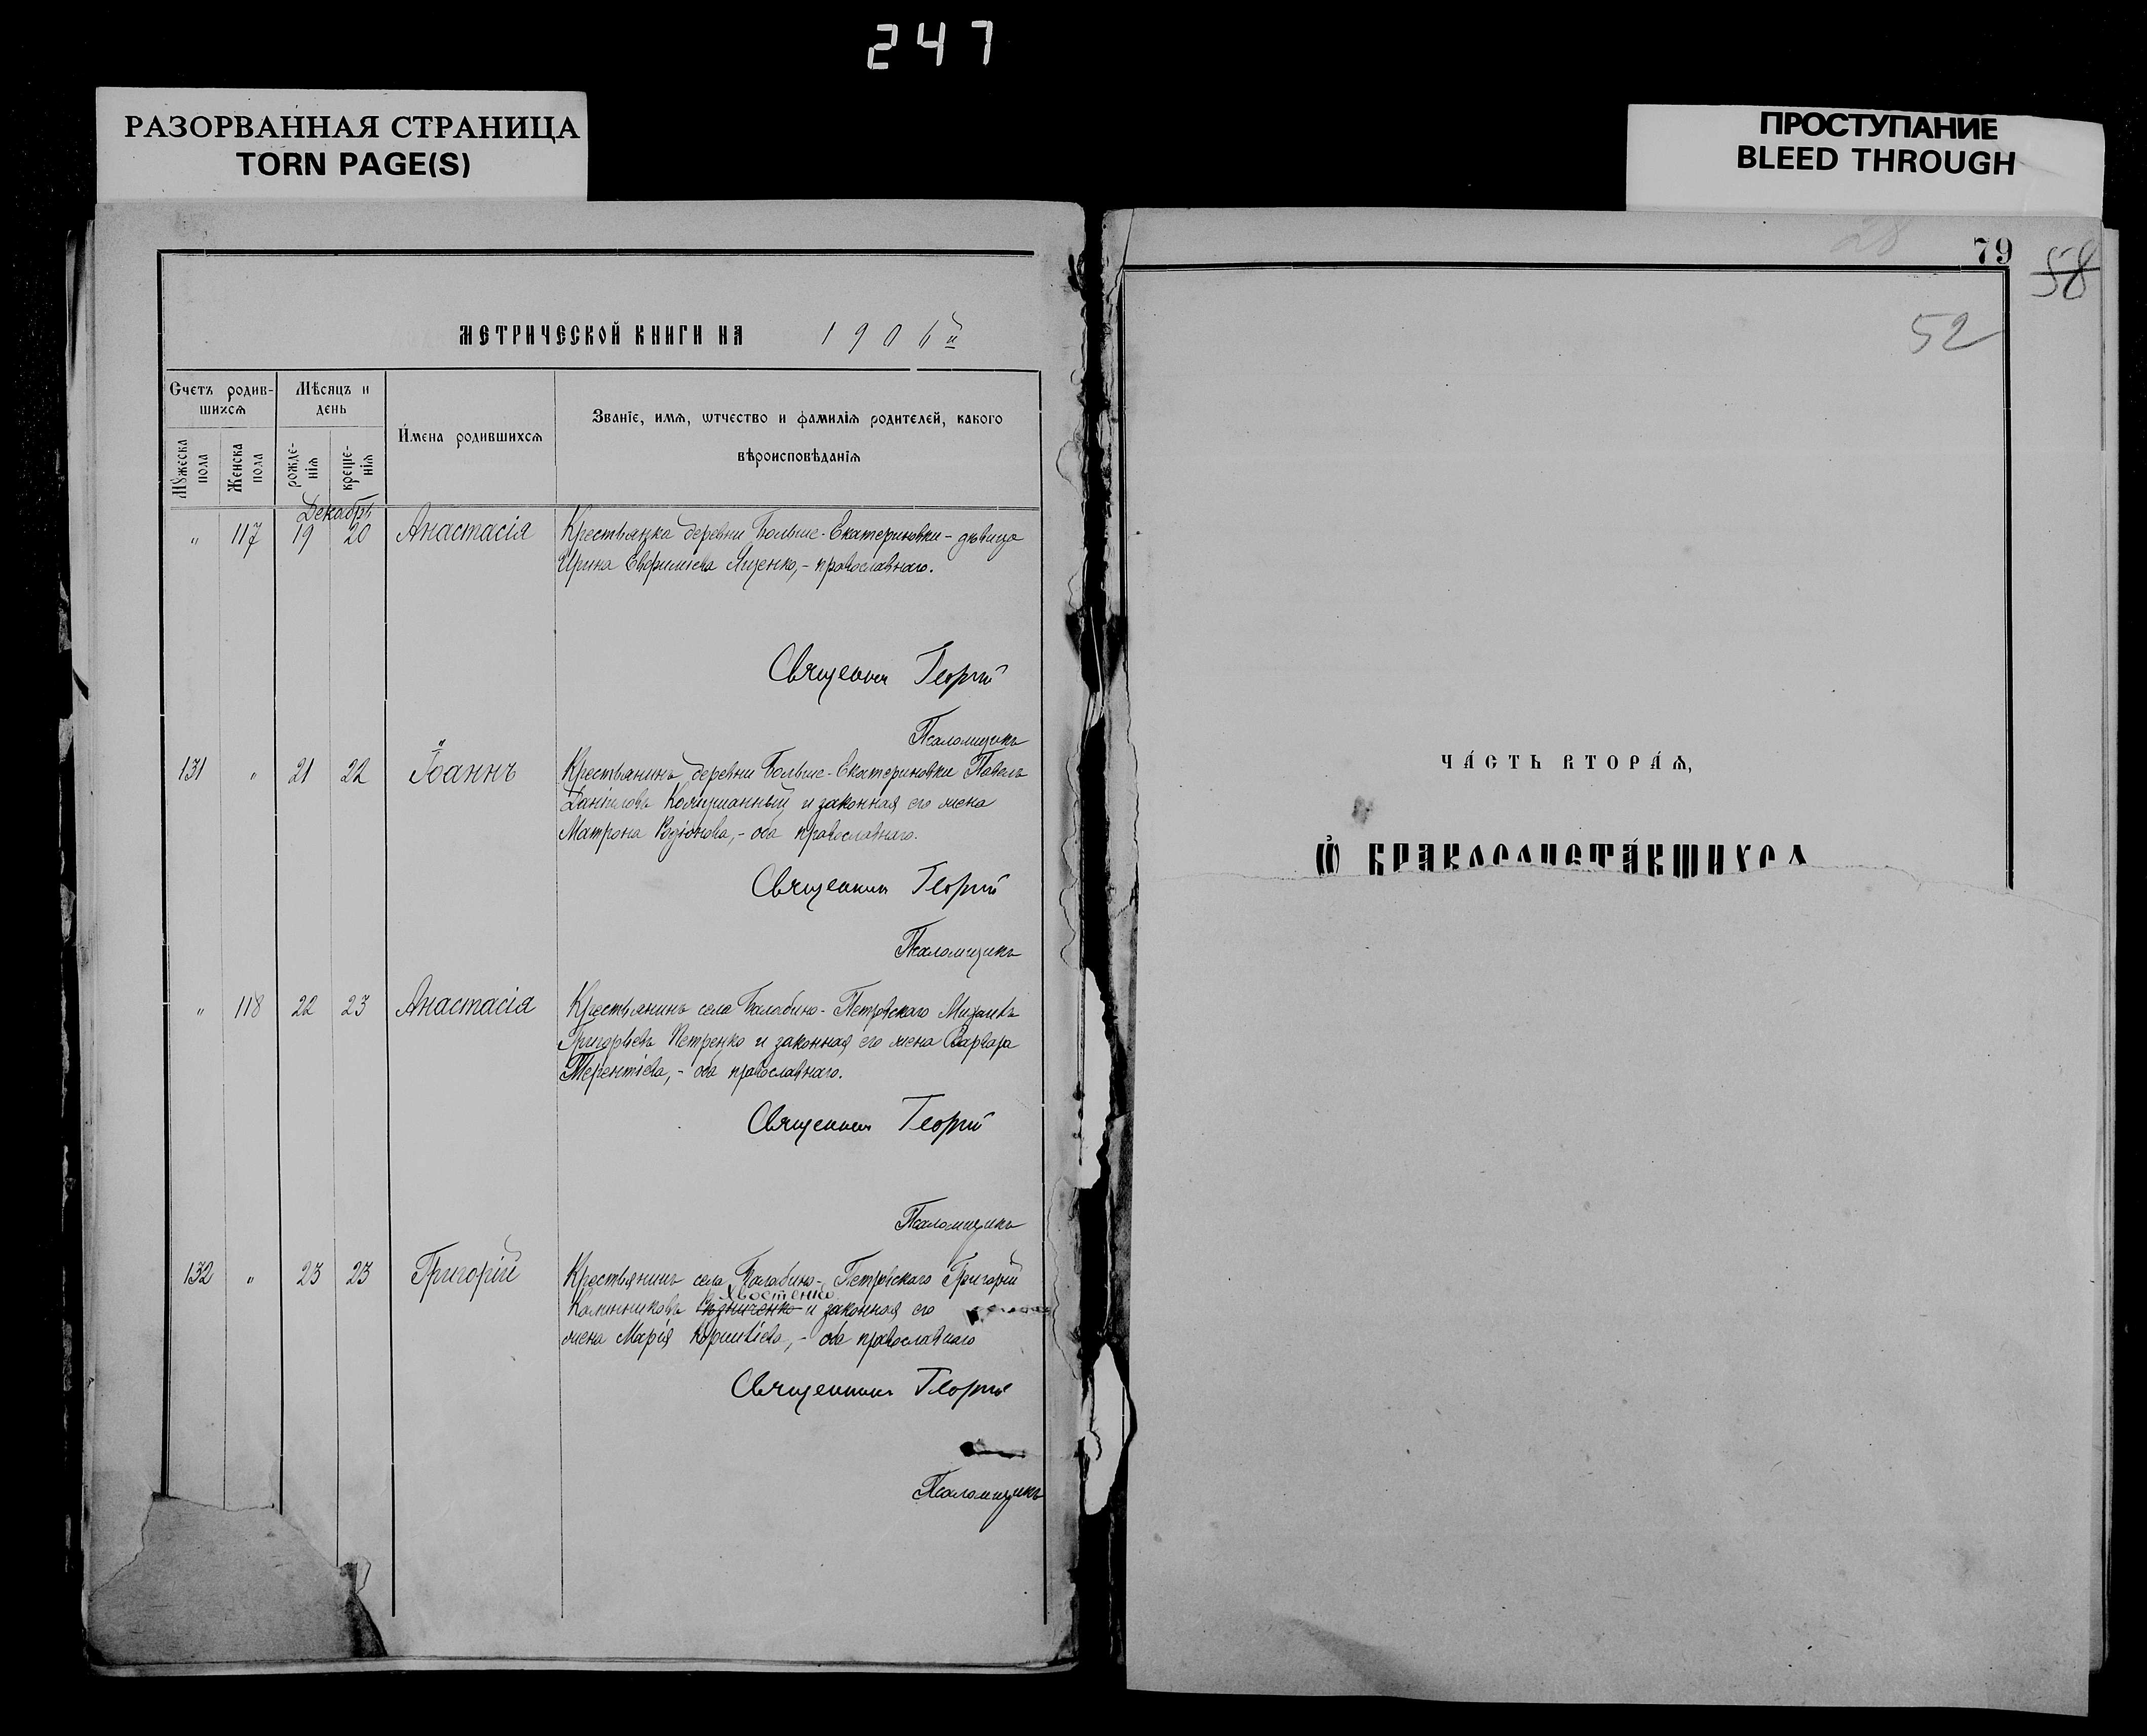 247
РАЗОРВАННАЯ СТРАНИЦА
TORN PAGE(S)
ПРОСТУПАНИЕ
BLEED THROUGH
МЕТРИЧЕСКОЙ КНИГИ НА 1906й
Счетъ родив-
шихсѧ
Мѣсяцъ и
день
Имена родившихсѧ
Званїе, имѧ, ѿтчество и фамилїѧ родителей, какого
вѣроисповѣданїѧ
Мꙋжеска
пола
Женска
пола
рожде-
нїѧ
креще-
нїѧ
Декабрь
" 117 19 20 Анастасія Крестьянка деревни Больше-Екатериновки - дѣвица
Ирина Евфиміева Яценко, - православнаго.
Священник Георгій
Псаломщикъ
131 " 21 22 Іоаннъ Крестьянинъ деревни Больше-Екатериновки Павелъ
Даніиловъ и законная его жена
Матрона Родіонова, - оба православнаго.
Священник Георгій
Псаломщикъ
" 118 22 23 Анастасія Крестьянинъ села Балабино-Петровскаго Михаилъ
Григорьевъ Петренко и законная его жена Варвара
Терентіева, - оба православнаго.
Священник Георгій
Псаломщикъ
132 " 23 23 Григорій Крестьянинъ села Балабино-Петровскаго Григорій
Хвостенко
Калинниковъ и законная его
жена Марія, - оба православнаго
Священник Георгій
Псаломщикъ
28
79
58
52
ЧА́СТЬ ВТОРА́Ѧ,
Ѡ҆ БРАКОСОЧЕТА́ВШИХСѦ